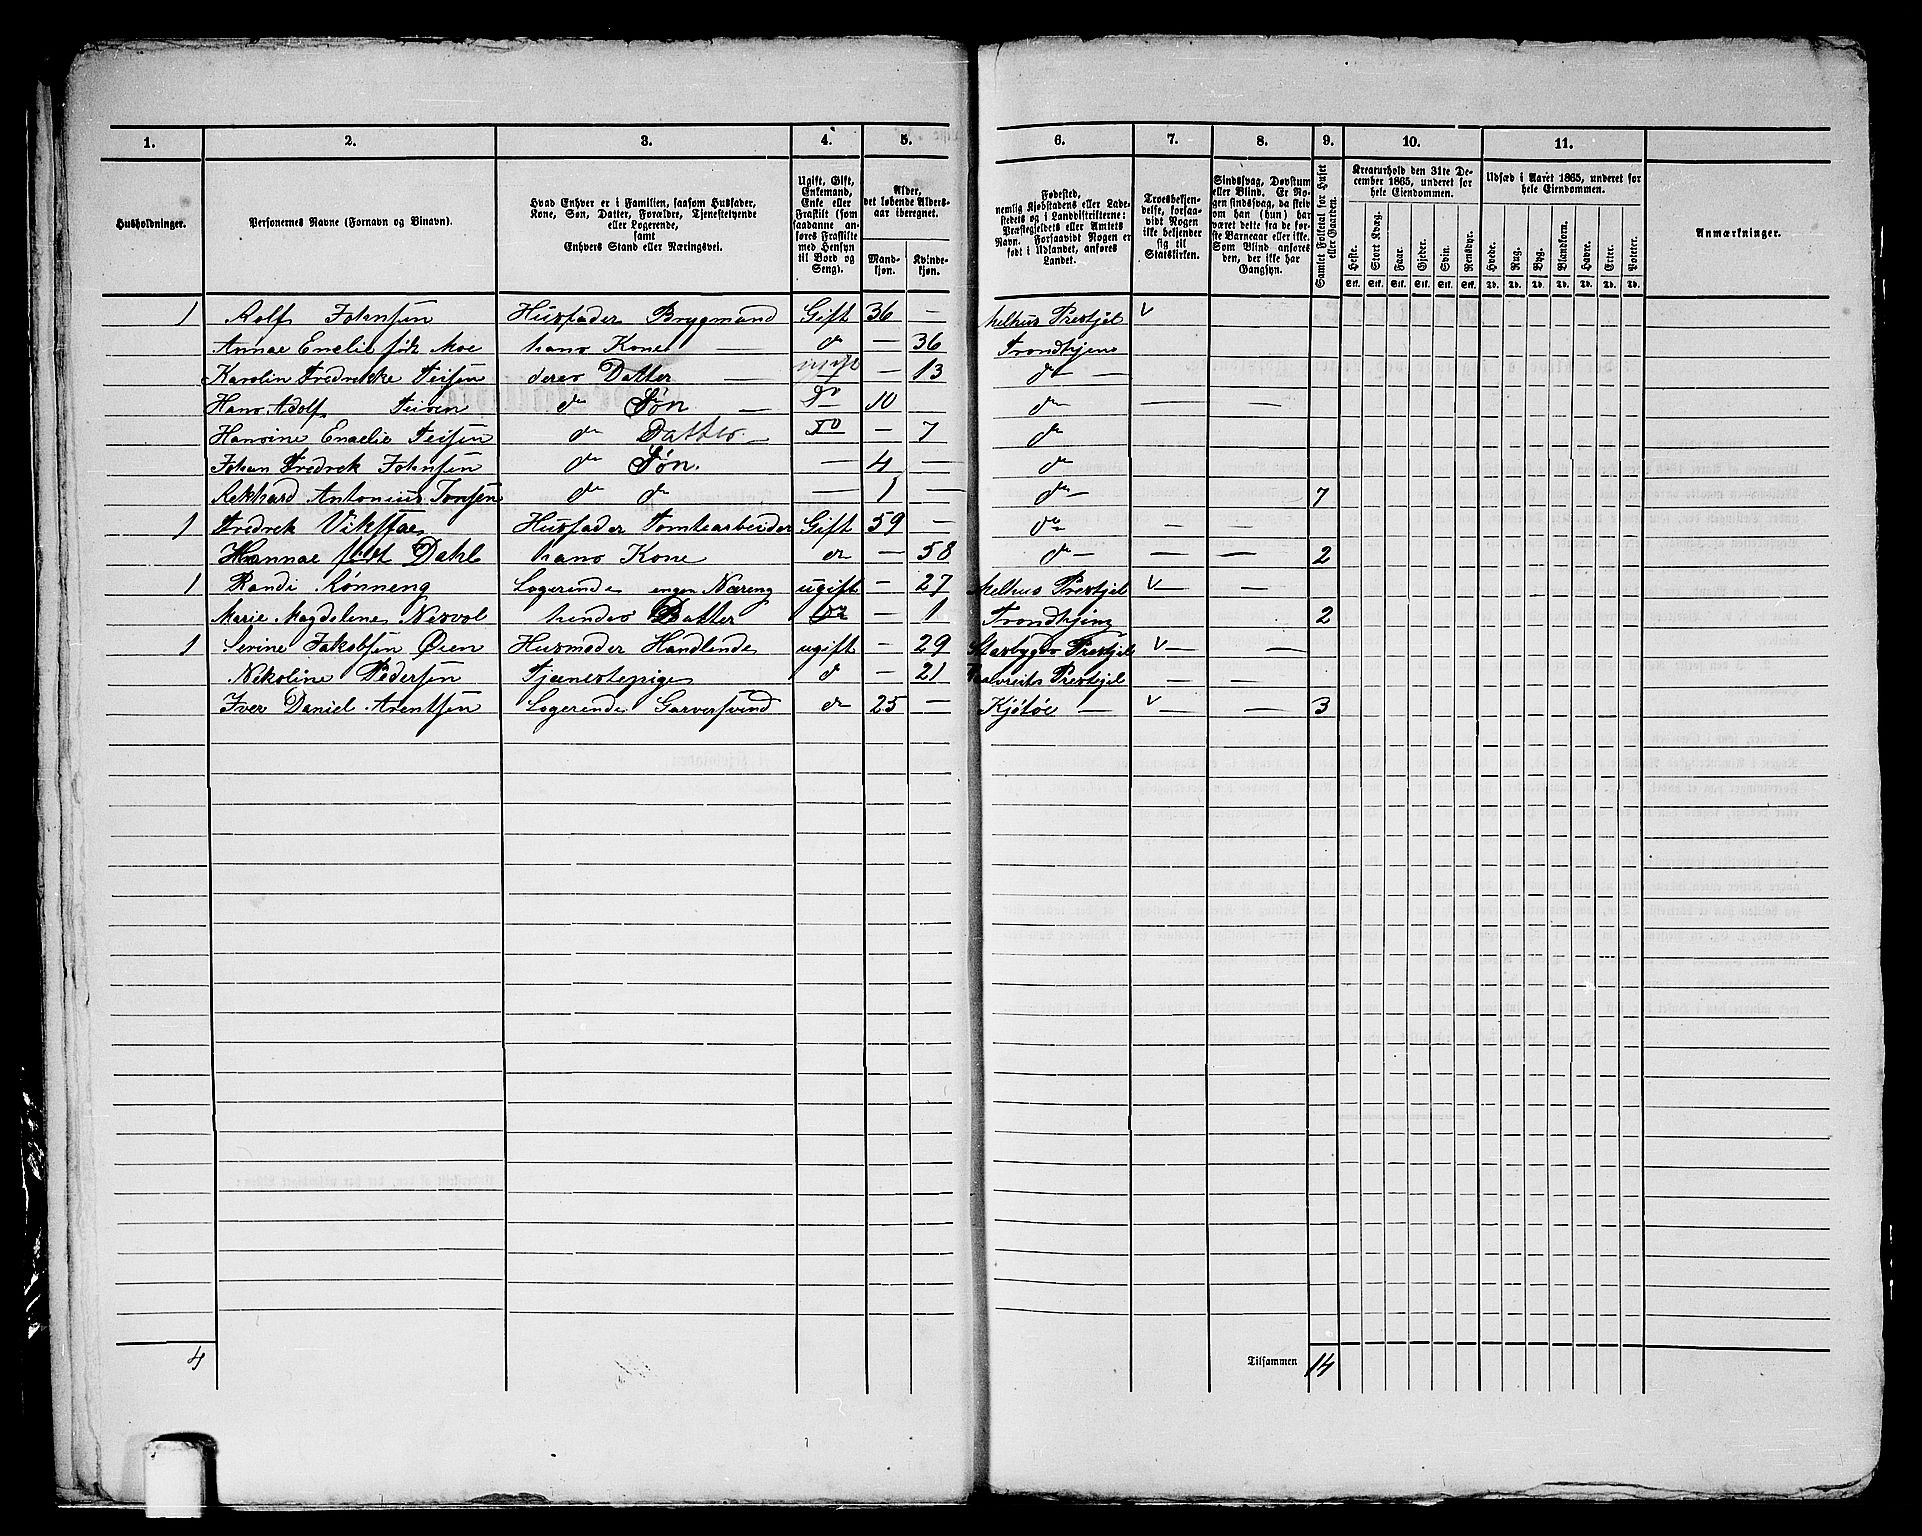 1. 2. 3. 4. 5. 6. 7. 8. 9. 10. 11.
Husholdninger.
Personernes Navne (Fornavn og Binavn).
Hvad Enhver er i Familien, saasom Husfader,
Kone, Søn, Datter, Forældre, Tjenestetyende
eller Logerende,
samt
Enhvers Stand eller Næringsvei.
Ugift, Gift,
Enkemand,
Enke eller
Fraskilt (som
saadanne an-
føres Fraskilte
med Hensyn
til Bord og
Seng).
Alder,
det løbende Alders-
aar iberegnet.
Mand-
kjøn.
Kvinde-
kjøn.
Fødested,
nemlig Kjøbstadens eller Lade-
stedets og i Landdistrikterne:
Præstegjeldets eller Amtets
Navn. Forsaavidt Nogen er
født i Udlandet, anføres
Landet.
Troesbekjen-
delse, forsaa-
vidt Nogen
ikke bekjender
sig til
Statskirken.
Sindssvag, Døvstum
eller Blind. Er No-
gen sindssvag, da skriv
om han (hun) har
været dette fra de før-
ste Barneaar eller ikke.
Som Blind anføres
den, der ikke har
Gangsyn.
Samlet Folketal for Huset
eller Gaarden.
Kreaturhold den 31te De-
cember 1865, underet for
hele Eiendommen.
Heste. Stort Kvæg. Faar. Gjeder. Svin. Rensdyr.
Stk. Stk. Stk. Stk. Stk. Stk.
Udsæd i Aaret 1865, underet for
hele Eiendommen.
Hvede. Rug. Byg. Blandkorn. Havre. Erter. Poteter.
Td. Td. Td. Td. Td. Td. Td.
Anmærkninger.
1 Rolf Johnsen Husfader Brygmand Gift 36 — Melhus Prestjel v
Annae Enelie født Moe hans Kone — do — 36 Trondhjem
Karolin Fredrecke Teisen deres Datter — ugift — 13 do —
Hans Adolf Teisen do Søn — Do 10 do — —
Hansine Enaelie Teisen do Datter — Do — 7 do
Johan Fredrek Johnsen do Søn. — 4 — do
Rekhard Antonius Jonsen do do — 1 — do — 7
1 Fredrek Vikstae Husfader Tomtearbeider Gift 59 — do — —
Hannae født Dahl hans Kone do — 58 do — — — 2
1 Randi Rønneng Logerende engen Næreng ugift — 27 Melhus Prestjel v — —
Marie Magdelene hendes Datter Do — 1 Trondhjem — — 2
1 Serine Jakobsen Øien Husmoder Handlende ugift — 29 Prestjel v — —
Nekoline Pedersen Tjenestepige d — 21 Prestejel — —
Iver Daniel Arentsen Logerende Garversvend do 25 — — v — 3
4 Tilsammen 14